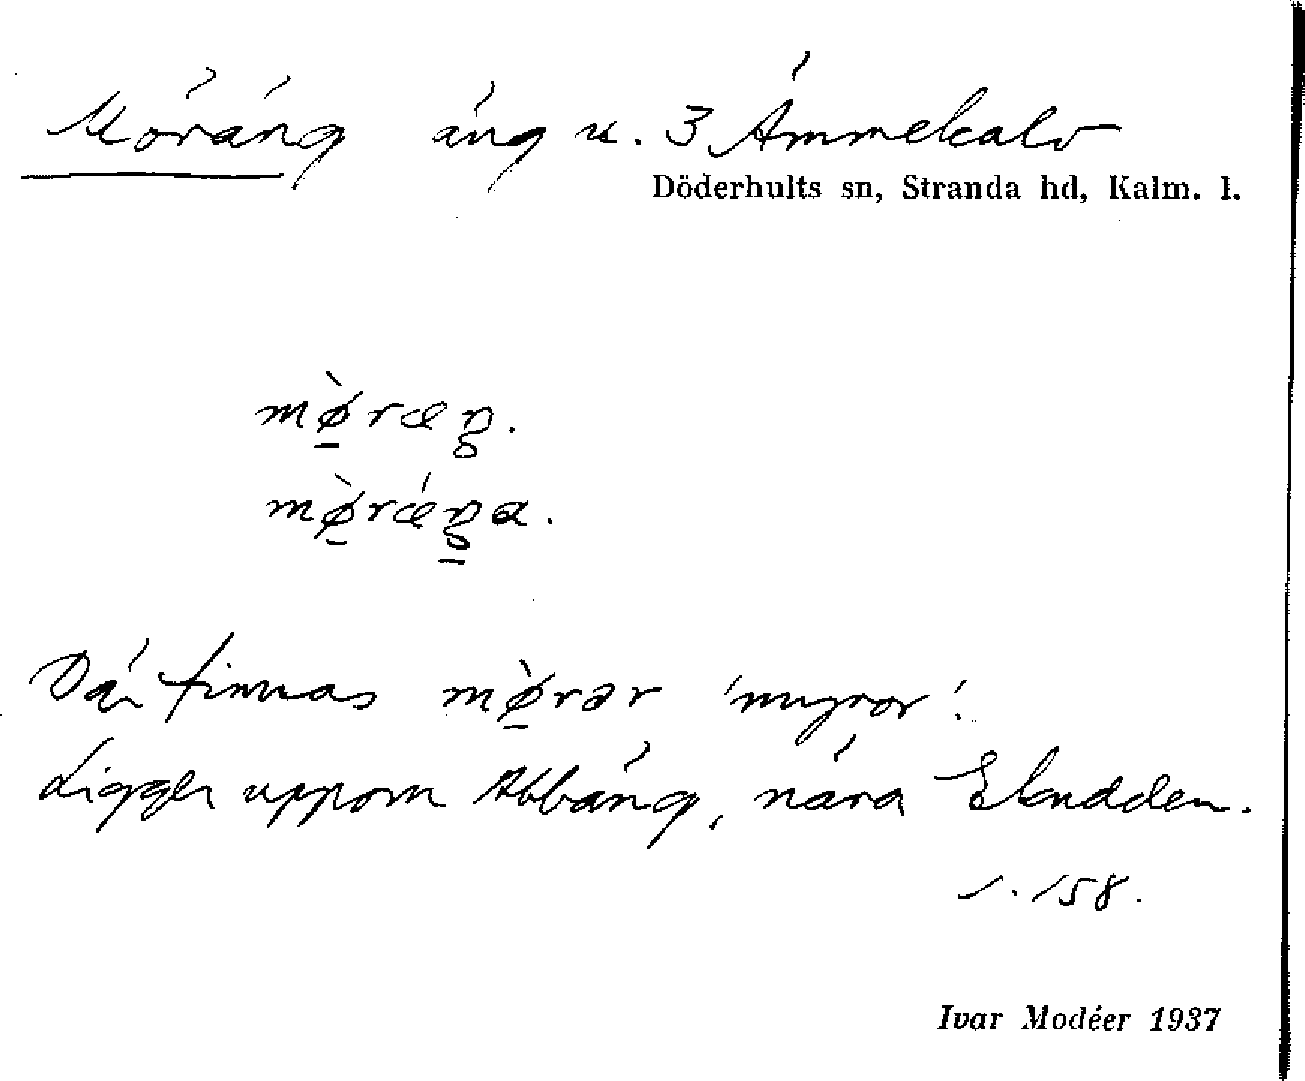 Möräng äng u. 3 Ämmekalv
Döderhults sn, Stranda hd, Kalm. l.
mø̱̀ræŋ.
mø̱̀rǽŋ̱a.
Där finnas mø̱̀rər 'myror'.
Ligger uppom Abbäng, nära Ekudden.
1.158.
Ivar Modéer 1937